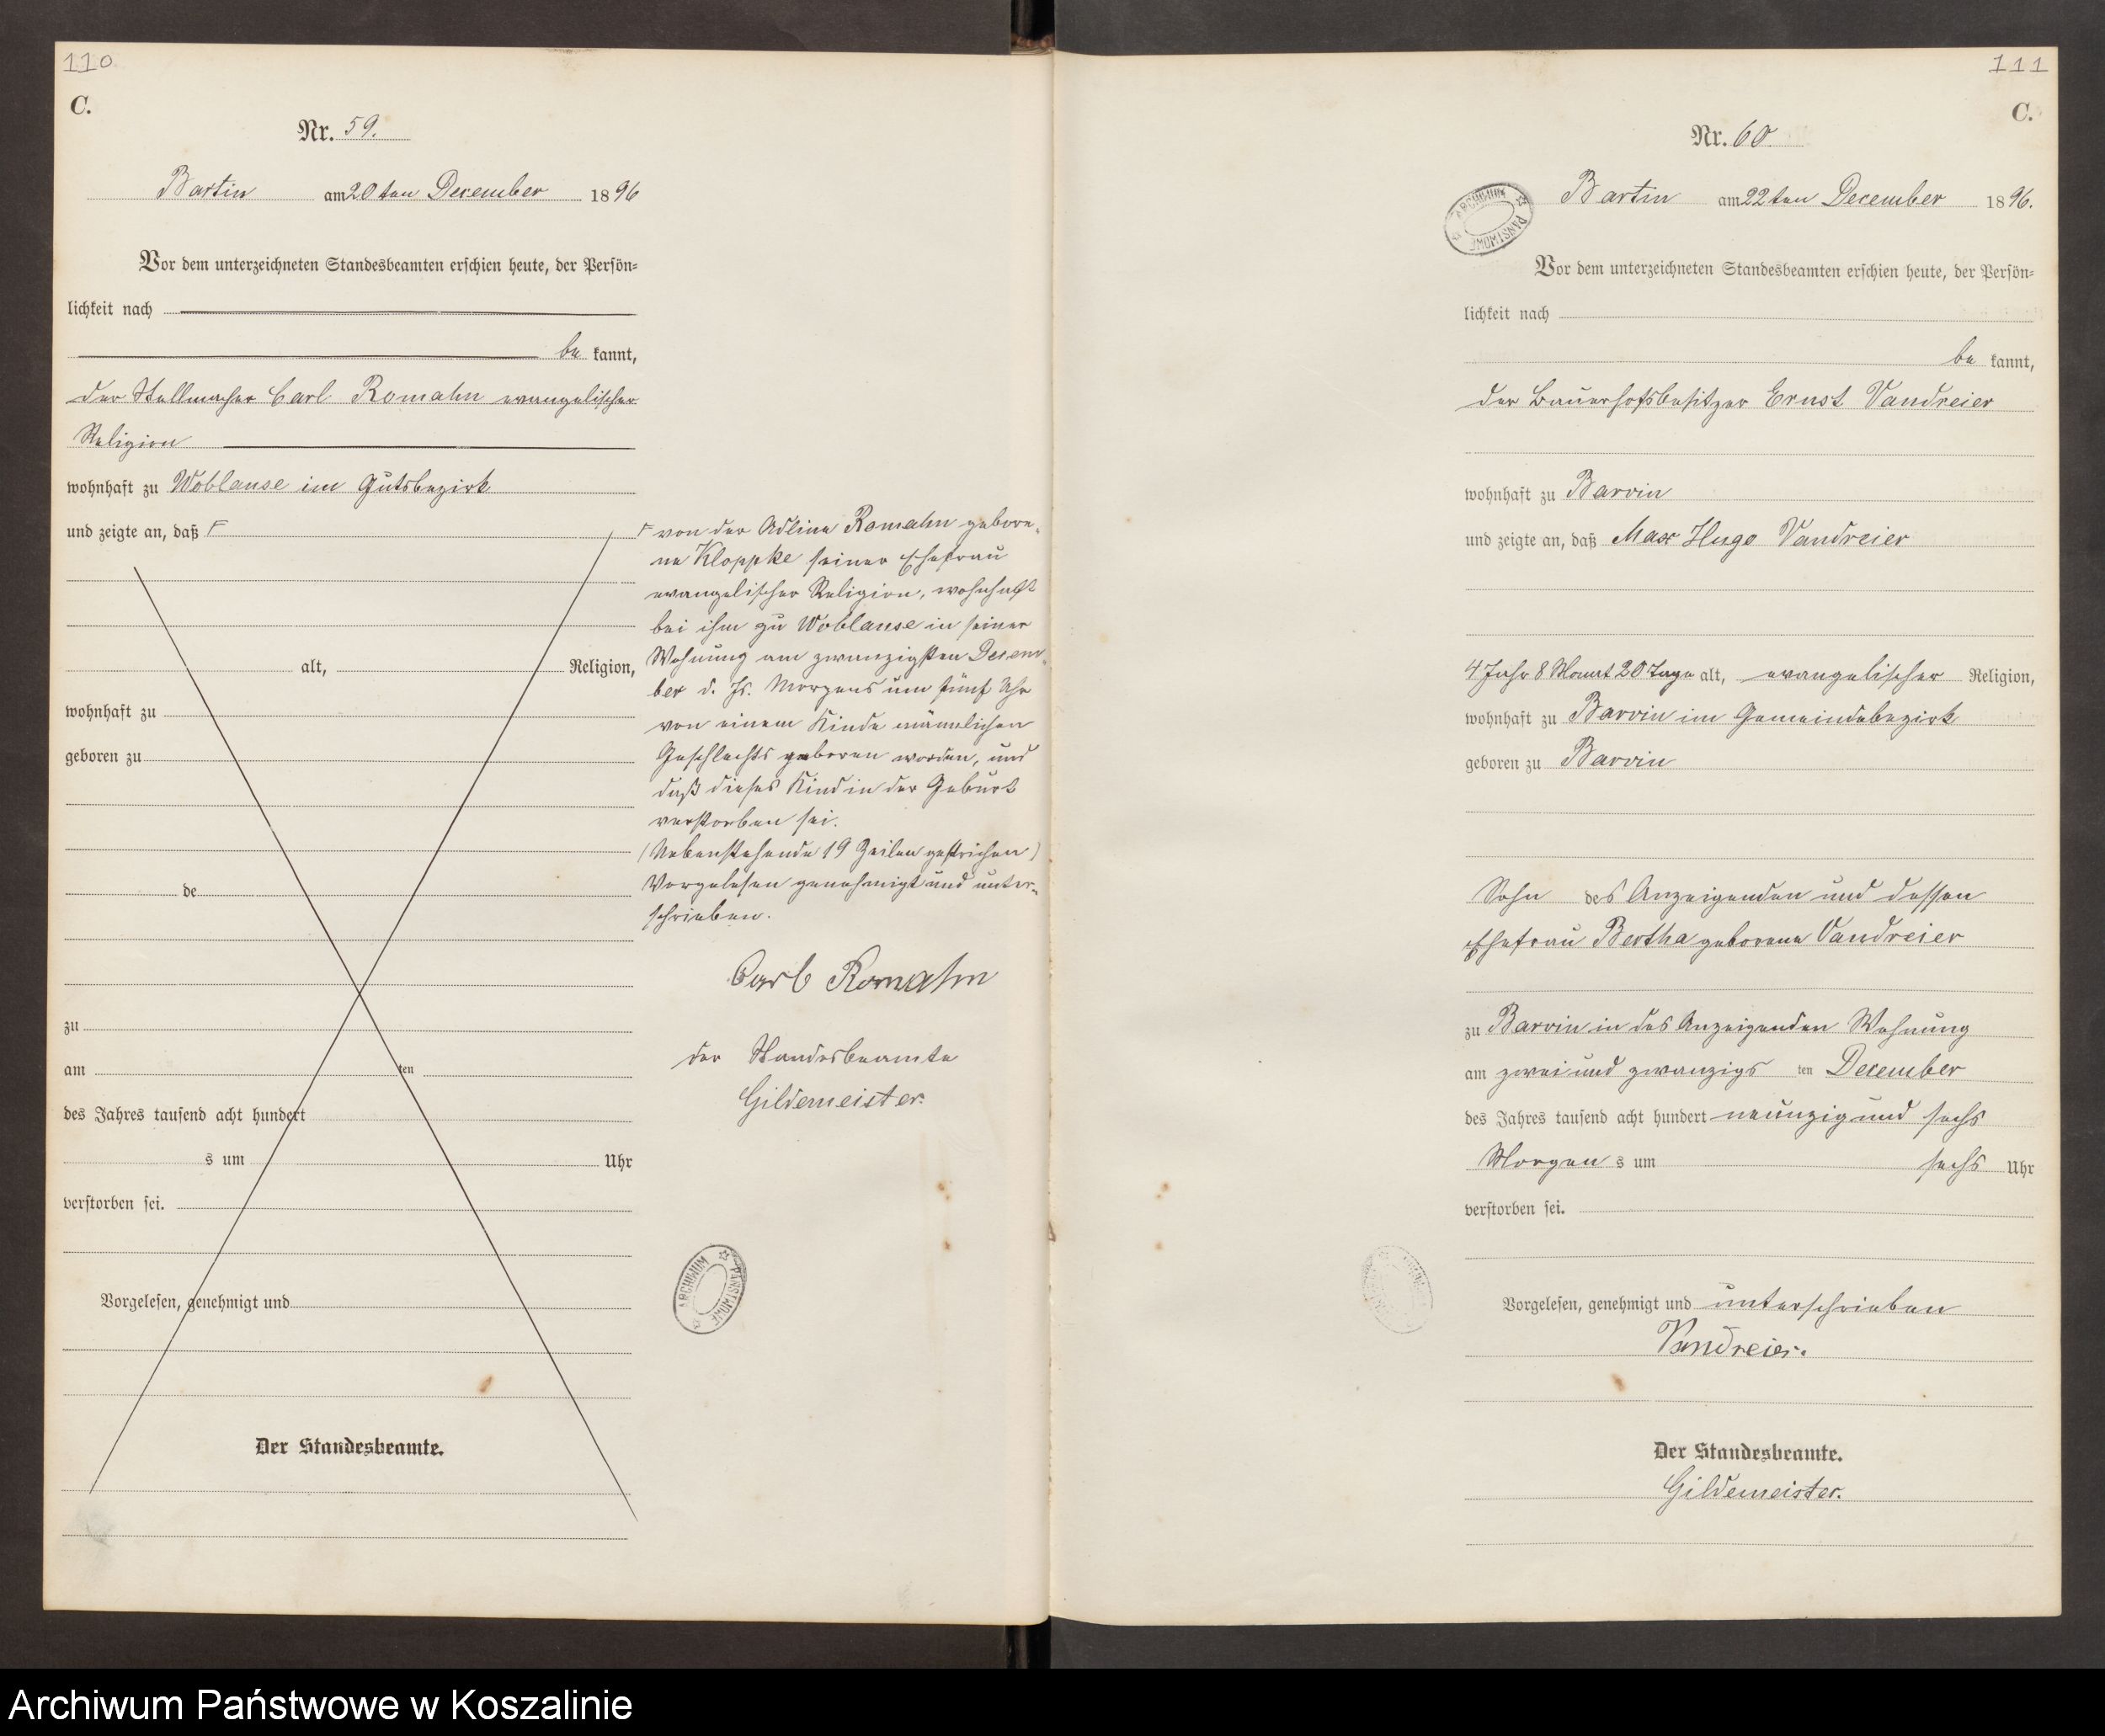 110
C.
Nr. 59.
Bartin am 20ten December 1896
Vor dem unterzeichneten Standesbeamten erschien heute, der Persön=
lichkeit nach
be kannt,
der Stellmacher Carl Romahn evangelischer
Religion
wohnhaft zu Woblanse im Gutsbezirk
und zeigte an, daß
alt, Religion,
wohnhaft zu
geboren zu
de
zu
am ten
des Jahres tausend acht hundert
s um Uhr
verstorben sei.
Vorgelesen, genehmigt und
Der Standesbeamte.
von der Adline Romahn gebore-
ne Kloppke seiner Ehefrau
evangelischer Religion, wohnhaft
bei ihm zu Woblanse in seiner
Wohnung am zwanzigsten Decem-
ber d. Js. Morgens um fünf Uhr
von einem Kinde männlichen
Geschlechts geboren worden, und
daß dieses Kind in der Geburt
verstorben sei.
(Nebenstehende 19 Zeilen gestrichen)
Vorgelesen genehmigt und unter-
schrieben.
Carl Romahn
der Standesbeamte
Gildemeister.
ARCHIWUM PAŃSTWOWE
111
C.
Nr. 60.
ARCHIWUM PAŃSTWOWE
Bartin am 22ten December 1896.
Vor dem unterzeichneten Standesbeamten erschien heute, der Persön=
lichkeit nach
be kannt,
der Bauerhofsbesitzer Ernst Vandreier
wohnhaft zu Barvin
und zeigte an, daß Max Hugo Vandreier
4 Jahr 8 Monat 20 Tage alt, evangelischer Religion,
wohnhaft zu Barvin im Gemeindebezirk
geboren zu Barvin
Sohn des Anzeigenden und dessen
Ehefrau Bertha geborene Vandreier
zu Barvin in des Anzeigenden Wohnung
am zwei und zwanzigs ten December
des Jahres tausend acht hundert neunzig und sechs
Morgen s um sechs Uhr
verstorben sei.
Vorgelesen, genehmigt und unterschrieben
Vandreier.
Der Standesbeamte.
Gildemeister.
Archiwum Państwowe w Koszalinie